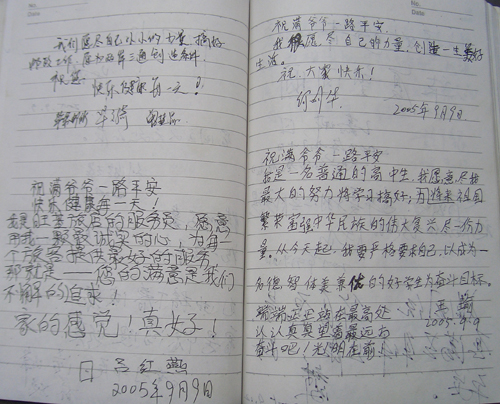 No.
Date
我们愿尽自己小小的力量搞好
邮政工作,愿为两岸三通创造条件
祝愿
快乐健康每一天!
祝满爷爷一路平安
快乐健康每一天!
我是旺圣旅店的服务员,愿意
用我一颗最诚实的心,为每一
个旅客提供最好的服务
那就是——您的满意是我们
不懈的追求!
家的感觉!真好!
吕红燕
2005年9月9日
No.
Date
祝满爷爷一路平安
我愿尽自己的力量,创造一生美好
生活。
祝大家快乐!
2005年9月9日
祝满爷爷一路平安
我是一名普通的高中生,我愿意尽我
最大的努力将学习搞好,为将来祖国
繁荣富强中华民族的伟大复兴尽一份力
量。从今天起,我要严格要求自己,以成为一
名德智体美兼优的好学生为奋斗目标。
端端正正站在最高处
认认真真望着最远方
奋斗吧!光明在前!
2005.9.9